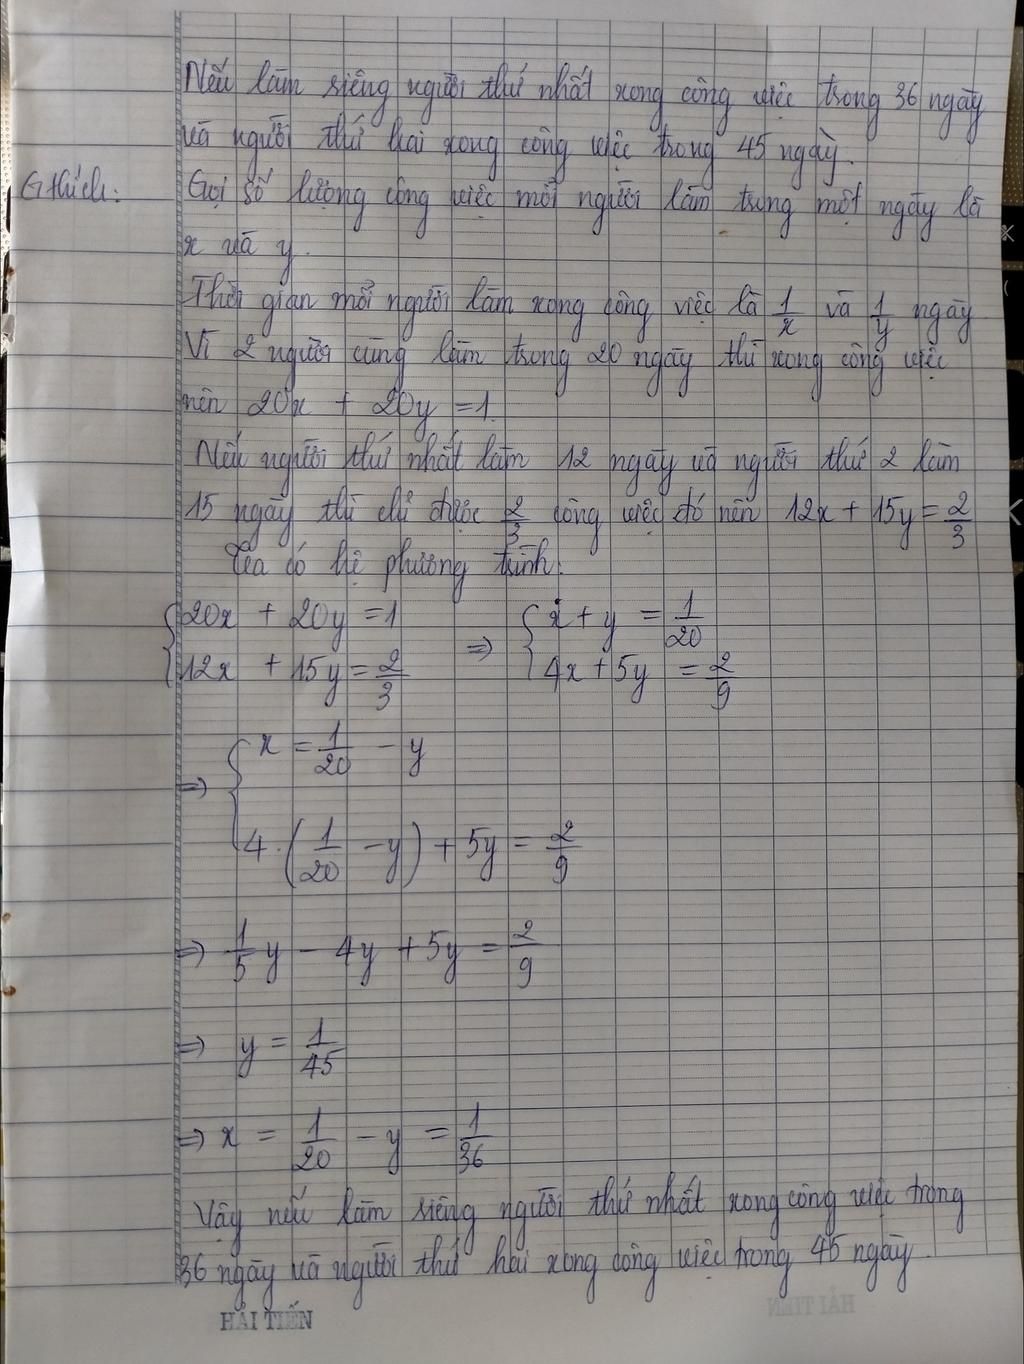 Nếu làm riêng người thứ nhất xong công việc trong 36 ngày
và người thứ hai xong công việc trong 45 ngày.
G thích: Gọi số lượng công việc mỗi người làm trong một ngày là
x và y.
Thời gian mỗi người làm xong công việc là 1/x và 1/y ngày
Vì 2 người cùng làm trong 20 ngày thì xong công việc
nên 20x + 20y = 1.
Nếu người thứ nhất làm 12 ngày và người thứ 2 làm
15 ngày thì chỉ được 2/3 công việc đó nên 12x + 15y = 2/3
Ta có hệ phương trình:
{ 20x + 20y = 1 => { x + y = 1/20
12x + 15y = 2/3 4x + 5y = 2/9
=> { x = 1/20 - y
4 · (1/20 - y) + 5y = 2/9
=> 1/5 y - 4y + 5y = 2/9
=> y = 1/45
=> x = 1/20 - y = 1/36
Vậy nếu làm riêng người thứ nhất xong công việc trong
36 ngày và người thứ hai xong công việc trong 45 ngày.
HẢI TIẾN